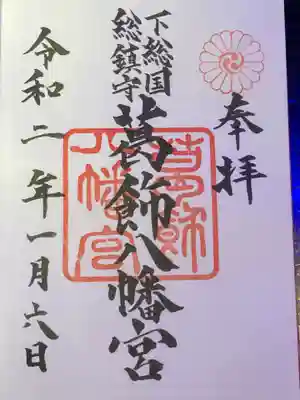 奉拝
下総国
総鎮守
葛飾八幡宮
葛飾
八幡宮
令和二年一月六日